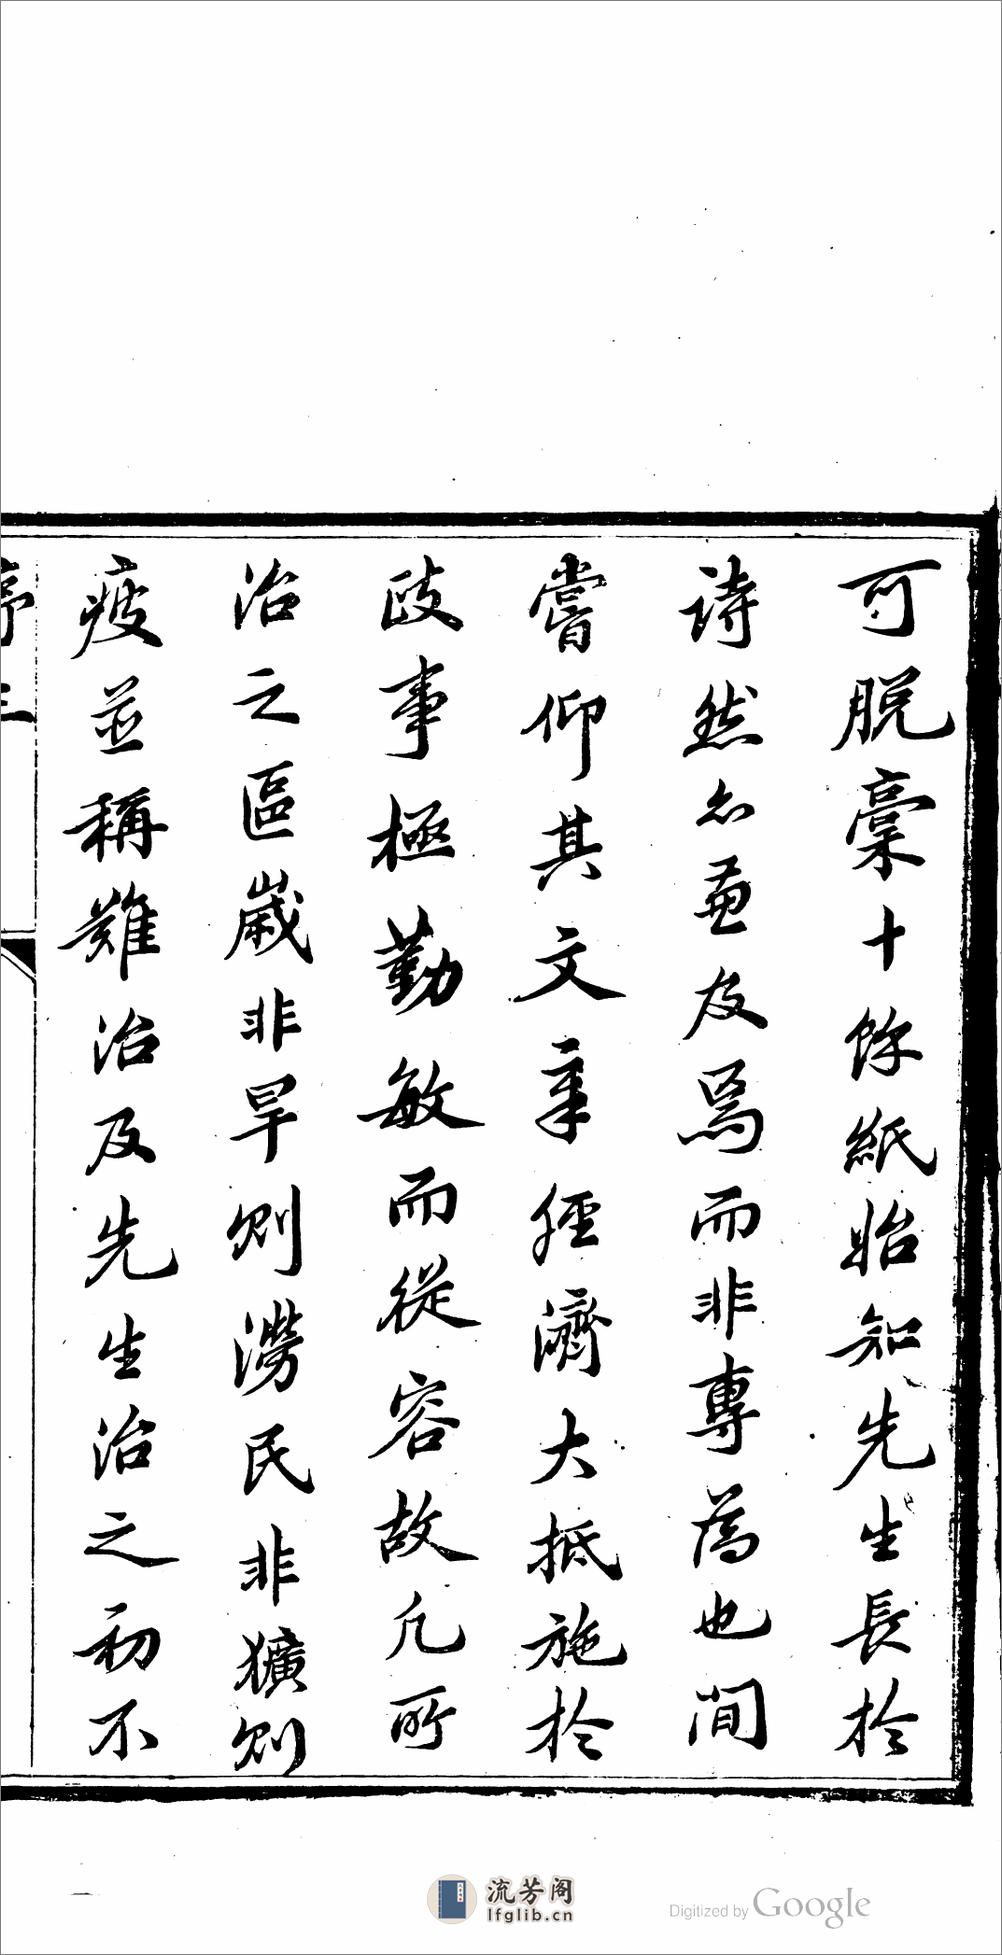 可脱稾十餘紙始知先生長於
詩然亦兼及焉而非專為也間
嘗仰其文章經濟大抵施於
政事極勤敏而從容故凡所
治之區歲非旱則澇民非獷則
疲並稱難治及先生治之初不
序 三
流芳阁
lfglib.cn
Digitized by Google